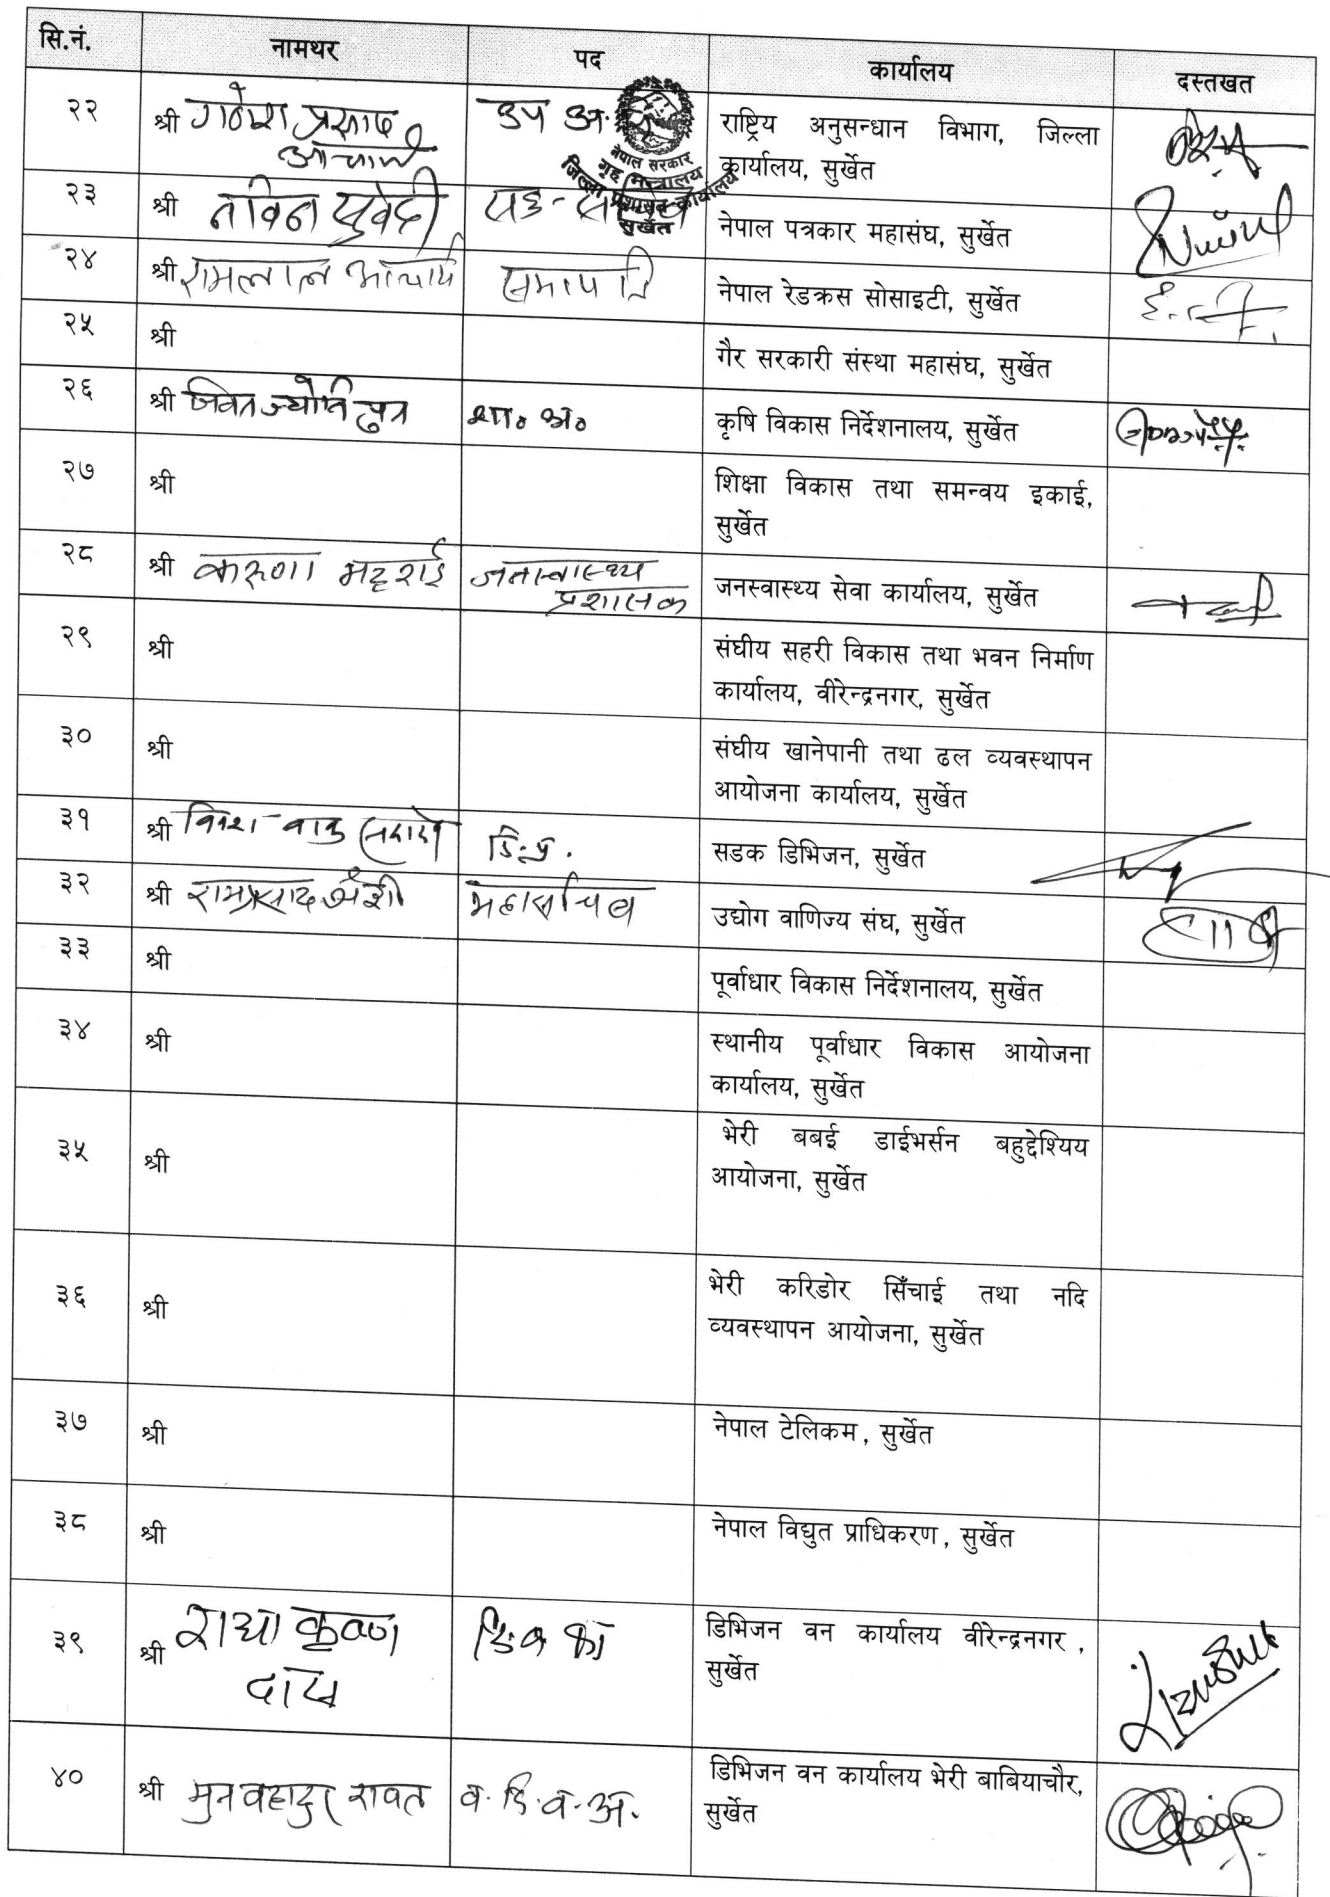 सि.नं. नामथर पद कार्यालय दस्तखत
२२ श्री गणेश प्रसाद आचार्य उप अ. राष्ट्रिय अनुसन्धान विभाग, जिल्ला
कार्यालय, सुर्खेत
नेपाल सरकार
गृह मन्त्रालय
जिल्ला प्रशासन कार्यालय
सुर्खेत
२३ श्री नविन सुवेदी सह-सचिव नेपाल पत्रकार महासंघ, सुर्खेत
२४ श्री रामलाल आचार्य सभापति नेपाल रेडक्रस सोसाइटी, सुर्खेत
२५ श्री गैर सरकारी संस्था महासंघ, सुर्खेत
२६ श्री ज्योति शा० अ० कृषि विकास निर्देशनालय, सुर्खेत
२७ श्री शिक्षा विकास तथा समन्वय इकाई,
सुर्खेत
२८ श्री करुणा भट्टराई जनस्वास्थ्य
प्रशासक जनस्वास्थ्य सेवा कार्यालय, सुर्खेत
२९ श्री संघीय सहरी विकास तथा भवन निर्माण
कार्यालय, वीरेन्द्रनगर, सुर्खेत
३० श्री संघीय खानेपानी तथा ढल व्यवस्थापन
आयोजना कार्यालय, सुर्खेत
३१ श्री डि.प्र. सडक डिभिजन, सुर्खेत
३२ श्री रामप्रसाद महासचिव उद्योग वाणिज्य संघ, सुर्खेत
३३ श्री पूर्वाधार विकास निर्देशनालय, सुर्खेत
३४ श्री स्थानीय पूर्वाधार विकास आयोजना
कार्यालय, सुर्खेत
३५ श्री भेरी बबई डाईभर्सन बहुद्देश्यिय
आयोजना, सुर्खेत
३६ श्री भेरी करिडोर सिँचाई तथा नदि
व्यवस्थापन आयोजना, सुर्खेत
३७ श्री नेपाल टेलिकम, सुर्खेत
३८ श्री नेपाल विद्युत प्राधिकरण, सुर्खेत
३९ श्री राधा कृष्ण
दास डिभिजन वन कार्यालय वीरेन्द्रनगर,
सुर्खेत
४० श्री मुनबहादुर रावत व.डि.व.अ. डिभिजन वन कार्यालय भेरी बाबियाचौर,
सुर्खेत